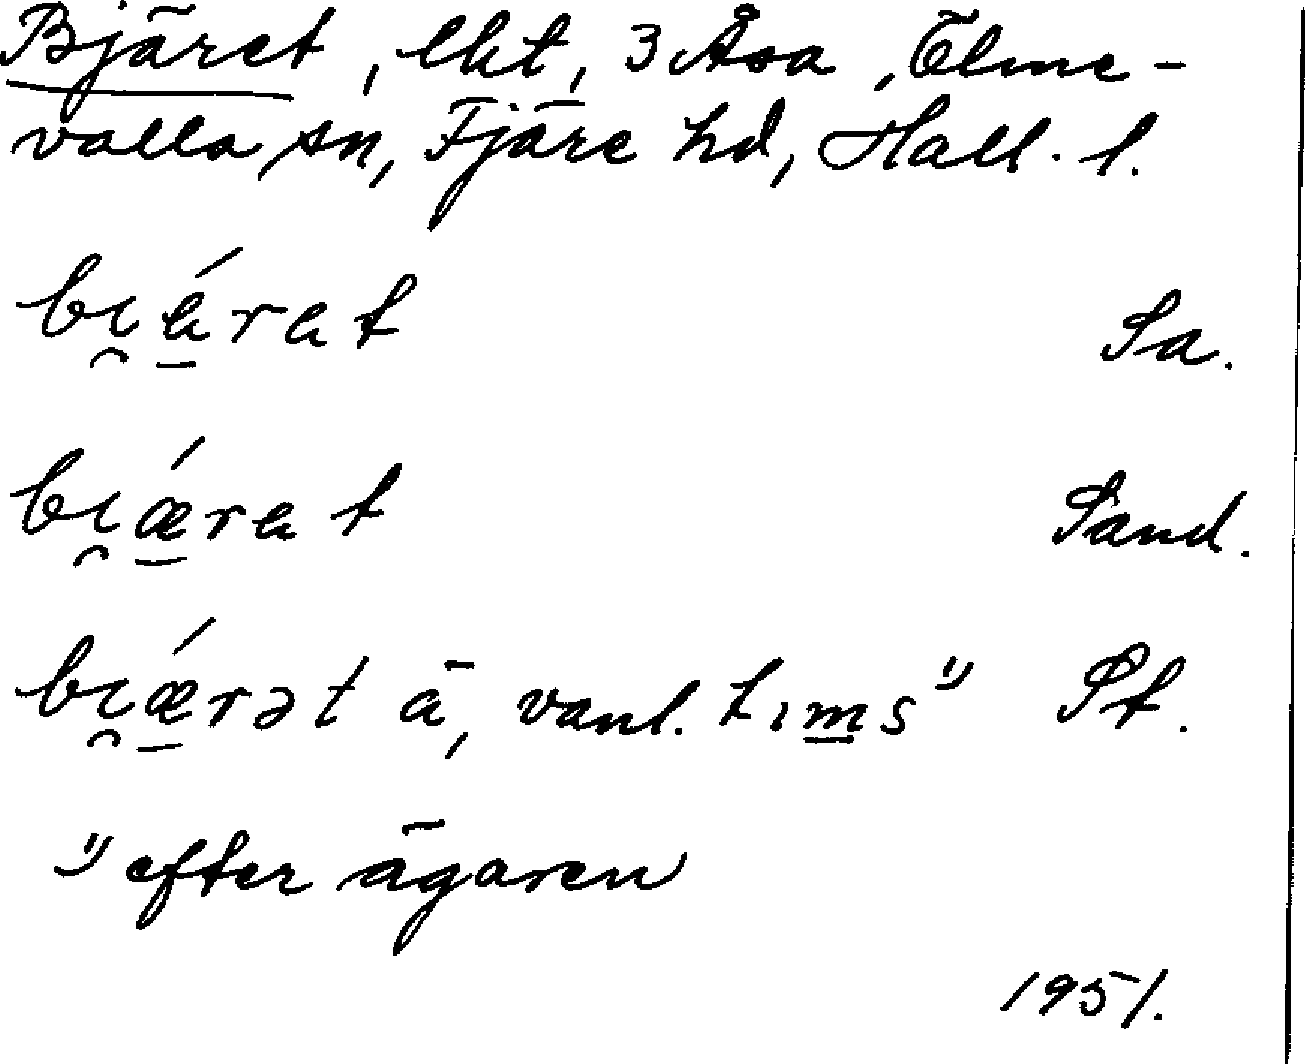 Bjäret, lht, 3 Åsa, Ölme-
valla sn, Fjäre hd, Hall. l.
bı̯á̱rat Sa.
bı̯ǽ̱rat Sand.
bı̯ǽ̱rət ä, vanl. tım̱s ¹⁾ St.
¹⁾ efter ägaren
1951.